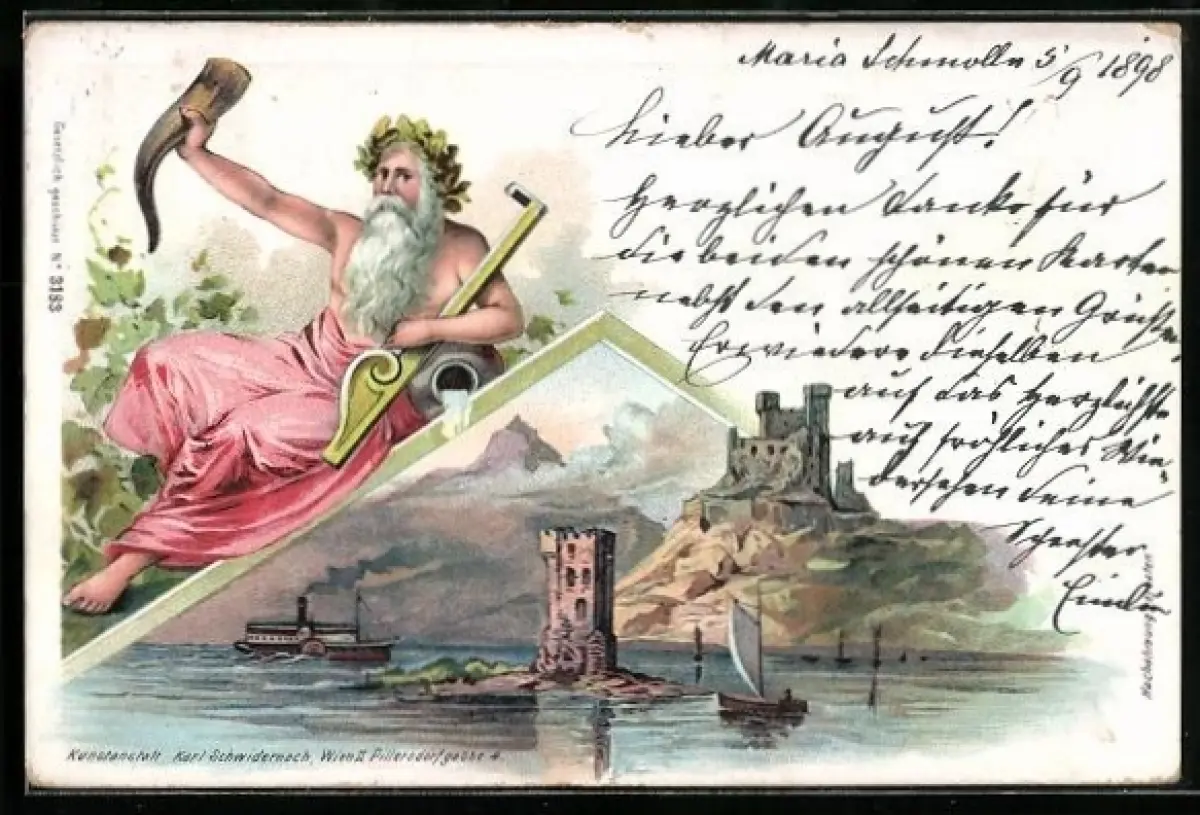 Maria Schmolln 5/9 1898
Lieber August!
Herzlichen Danke für
die beiden schönen Karten
nebst den allseitigen Grüßen.
Erwiedere dieselben
auf das Herzlichste
auf fröhliches Wie-
dersehen deine
Schwester
Gesetzlich geschützt No 3183
Nachahmung
Kunstanstalt Karl Schwidernoch, Wien II Pillersdorfgasse 4.